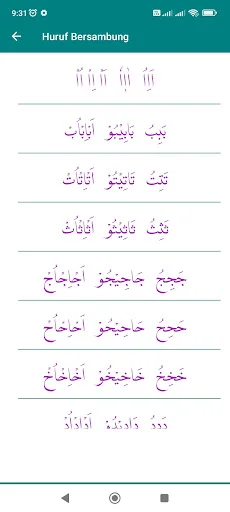 9:31
Huruf Bersambung
اَاِاُ اٰاٖ اَاْ اِاْ اُاْ
بَبِبُ بَابِيْبُوْ اَبَابِابُابْ
تَتِتُ تَاتِيْتُوْ اَتَاتِاتُاتْ
ثَثِثُ ثَاثِيْثُوْ اَثَاثِاثُاثْ
جَجِجُ جَاجِيْجُوْ اَجَاجِاجُاجْ
حَحِحُ حَاحِيْحُوْ اَحَاحِاحُاحْ
خَخِخُ خَاخِيْخُوْ اَخَاخِاخُاخْ
دَدِدُ دَادِيْدُوْ اَدَادِادُادْ